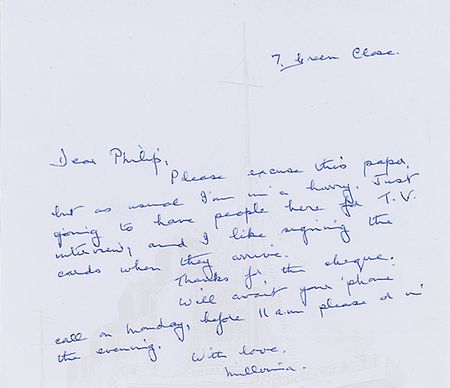 7, Green Close.
Dear Philip,
Please excuse this paper,
but as usual I'm in a hurry. Just
going to have people here for T.V.
interview, and I like signing the
cards when they arrive.
Thanks for the cheque.
Will await your 'phone
call on Monday, before 11 a.m please or in
the evening.
With love,
Millvina.